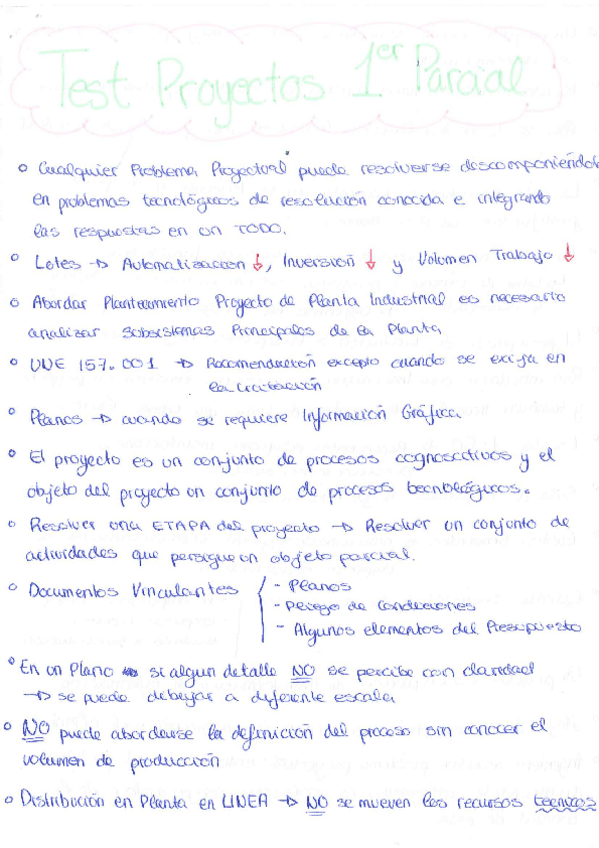 Test Proyectos 1er Parcial
o Cualquier Problema Proyectual puede resolverse descomponiéndolo
en problemas tecnológicos de resolución conocida e integrando
las respuestas en un TODO.
o Lotes → Automatización ↓, Inversión ↓ y Volumen Trabajo ↓
o Abordar Planteamiento Proyecto de Planta Industrial es necesario
analizar Subsistemas Principales de la Planta
o UNE 157.001 → Recomendación excepto cuando se exija en
la licitación
o Planos → cuando se requiere Información Gráfica.
o El proyecto es un conjunto de procesos cognoscitivos y el
objeto del proyecto un conjunto de procesos tecnológicos.
o Resolver una ETAPA del proyecto → Resolver un conjunto de
actividades que persiguen un objeto parcial.
o Documentos Vinculantes
- Planos
- Pliego de Condiciones
- Algunos elementos del Presupuesto
o En un Plano si algun detalle NO se percibe con claridad
→ se puede dibujar a diferente escala
o NO puede abordarse la definición del proceso sin conocer el
volumen de producción
o Distribución en Planta en LINEA → NO se mueven los recursos tecnicos